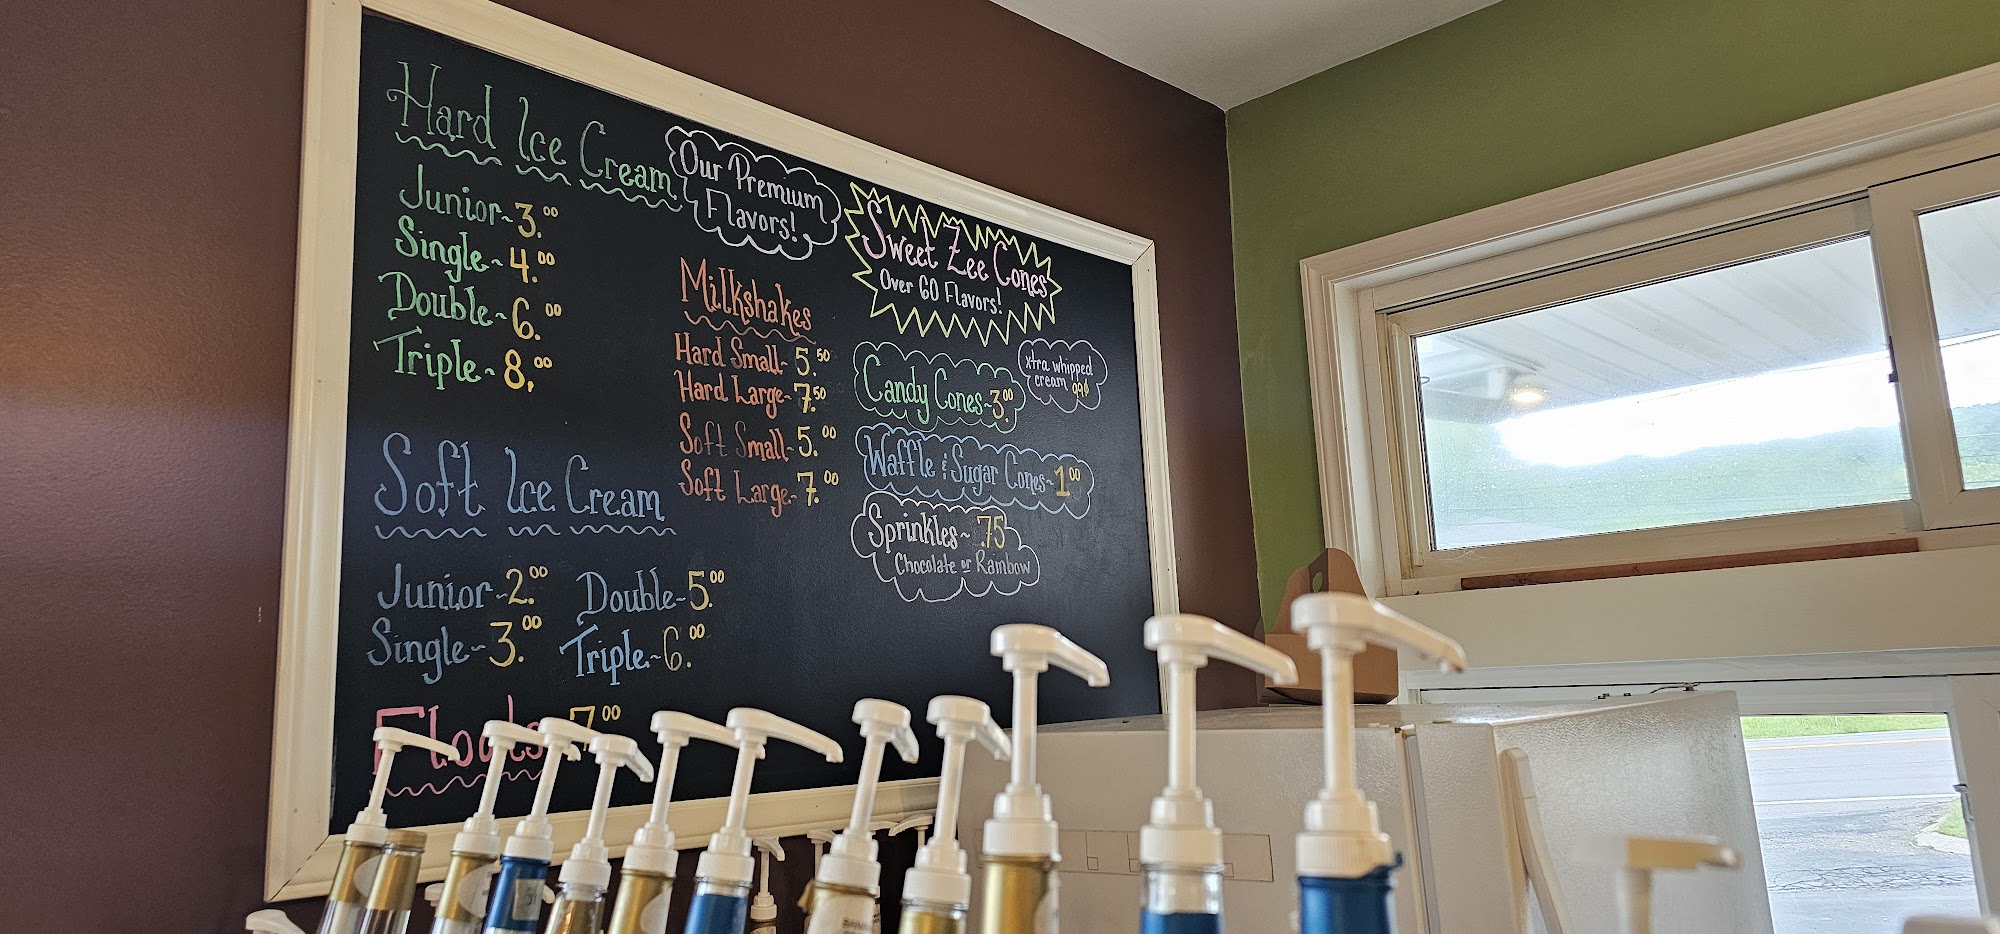 Hard Ice Cream
Junior~3.00
Single~4.00
Double~6.00
Triple~8.00
Our Premium
Flavors!
Milkshakes
Hard Small~5.50
Hard Large~7.50
Soft Small~5.00
Soft Large~7.00
Sweet Zee Cones
Over 60 Flavors!
xtra whipped
cream 99¢
Candy Cones~3.00
Waffle & Sugar Cones~1.00
Sprinkles~ .75
Chocolate or Rainbow
Soft Ice Cream
Junior~2.00 Double~5.00
Single~3.00 Triple~6.00
Floats 7.00